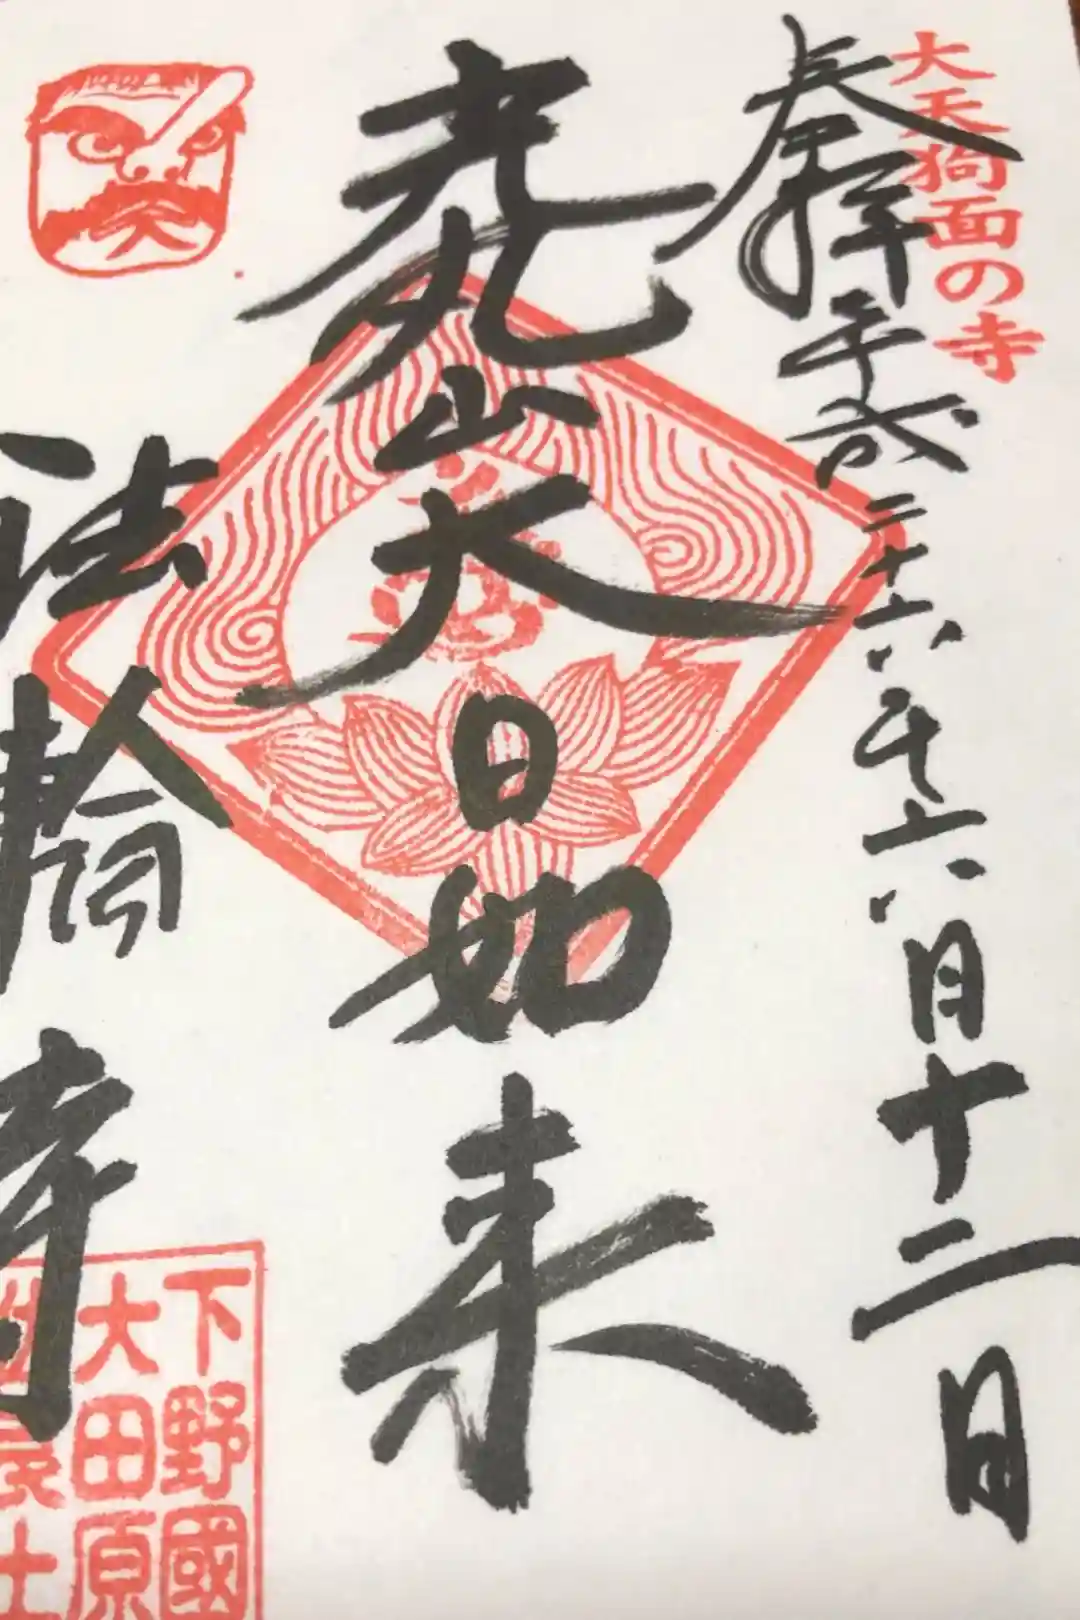 大天狗面の寺
奉拝 平成二十六年六月十二日
光丸山大日如来
法輪寺
下野國
大田原